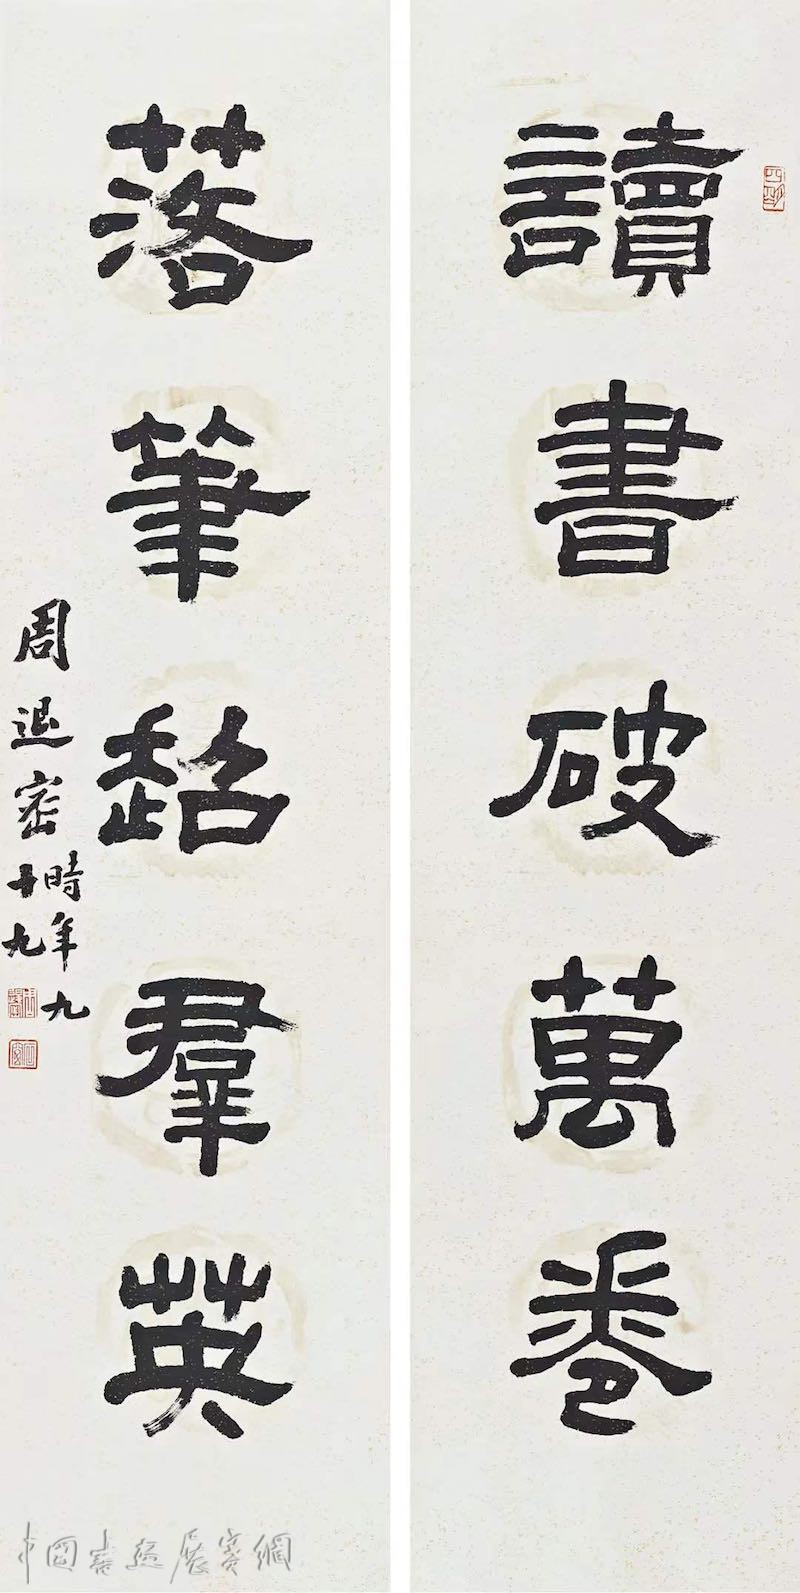 讀書破萬卷
落筆超羣英
周退密時年九十九
四明
中國書畫展賽網